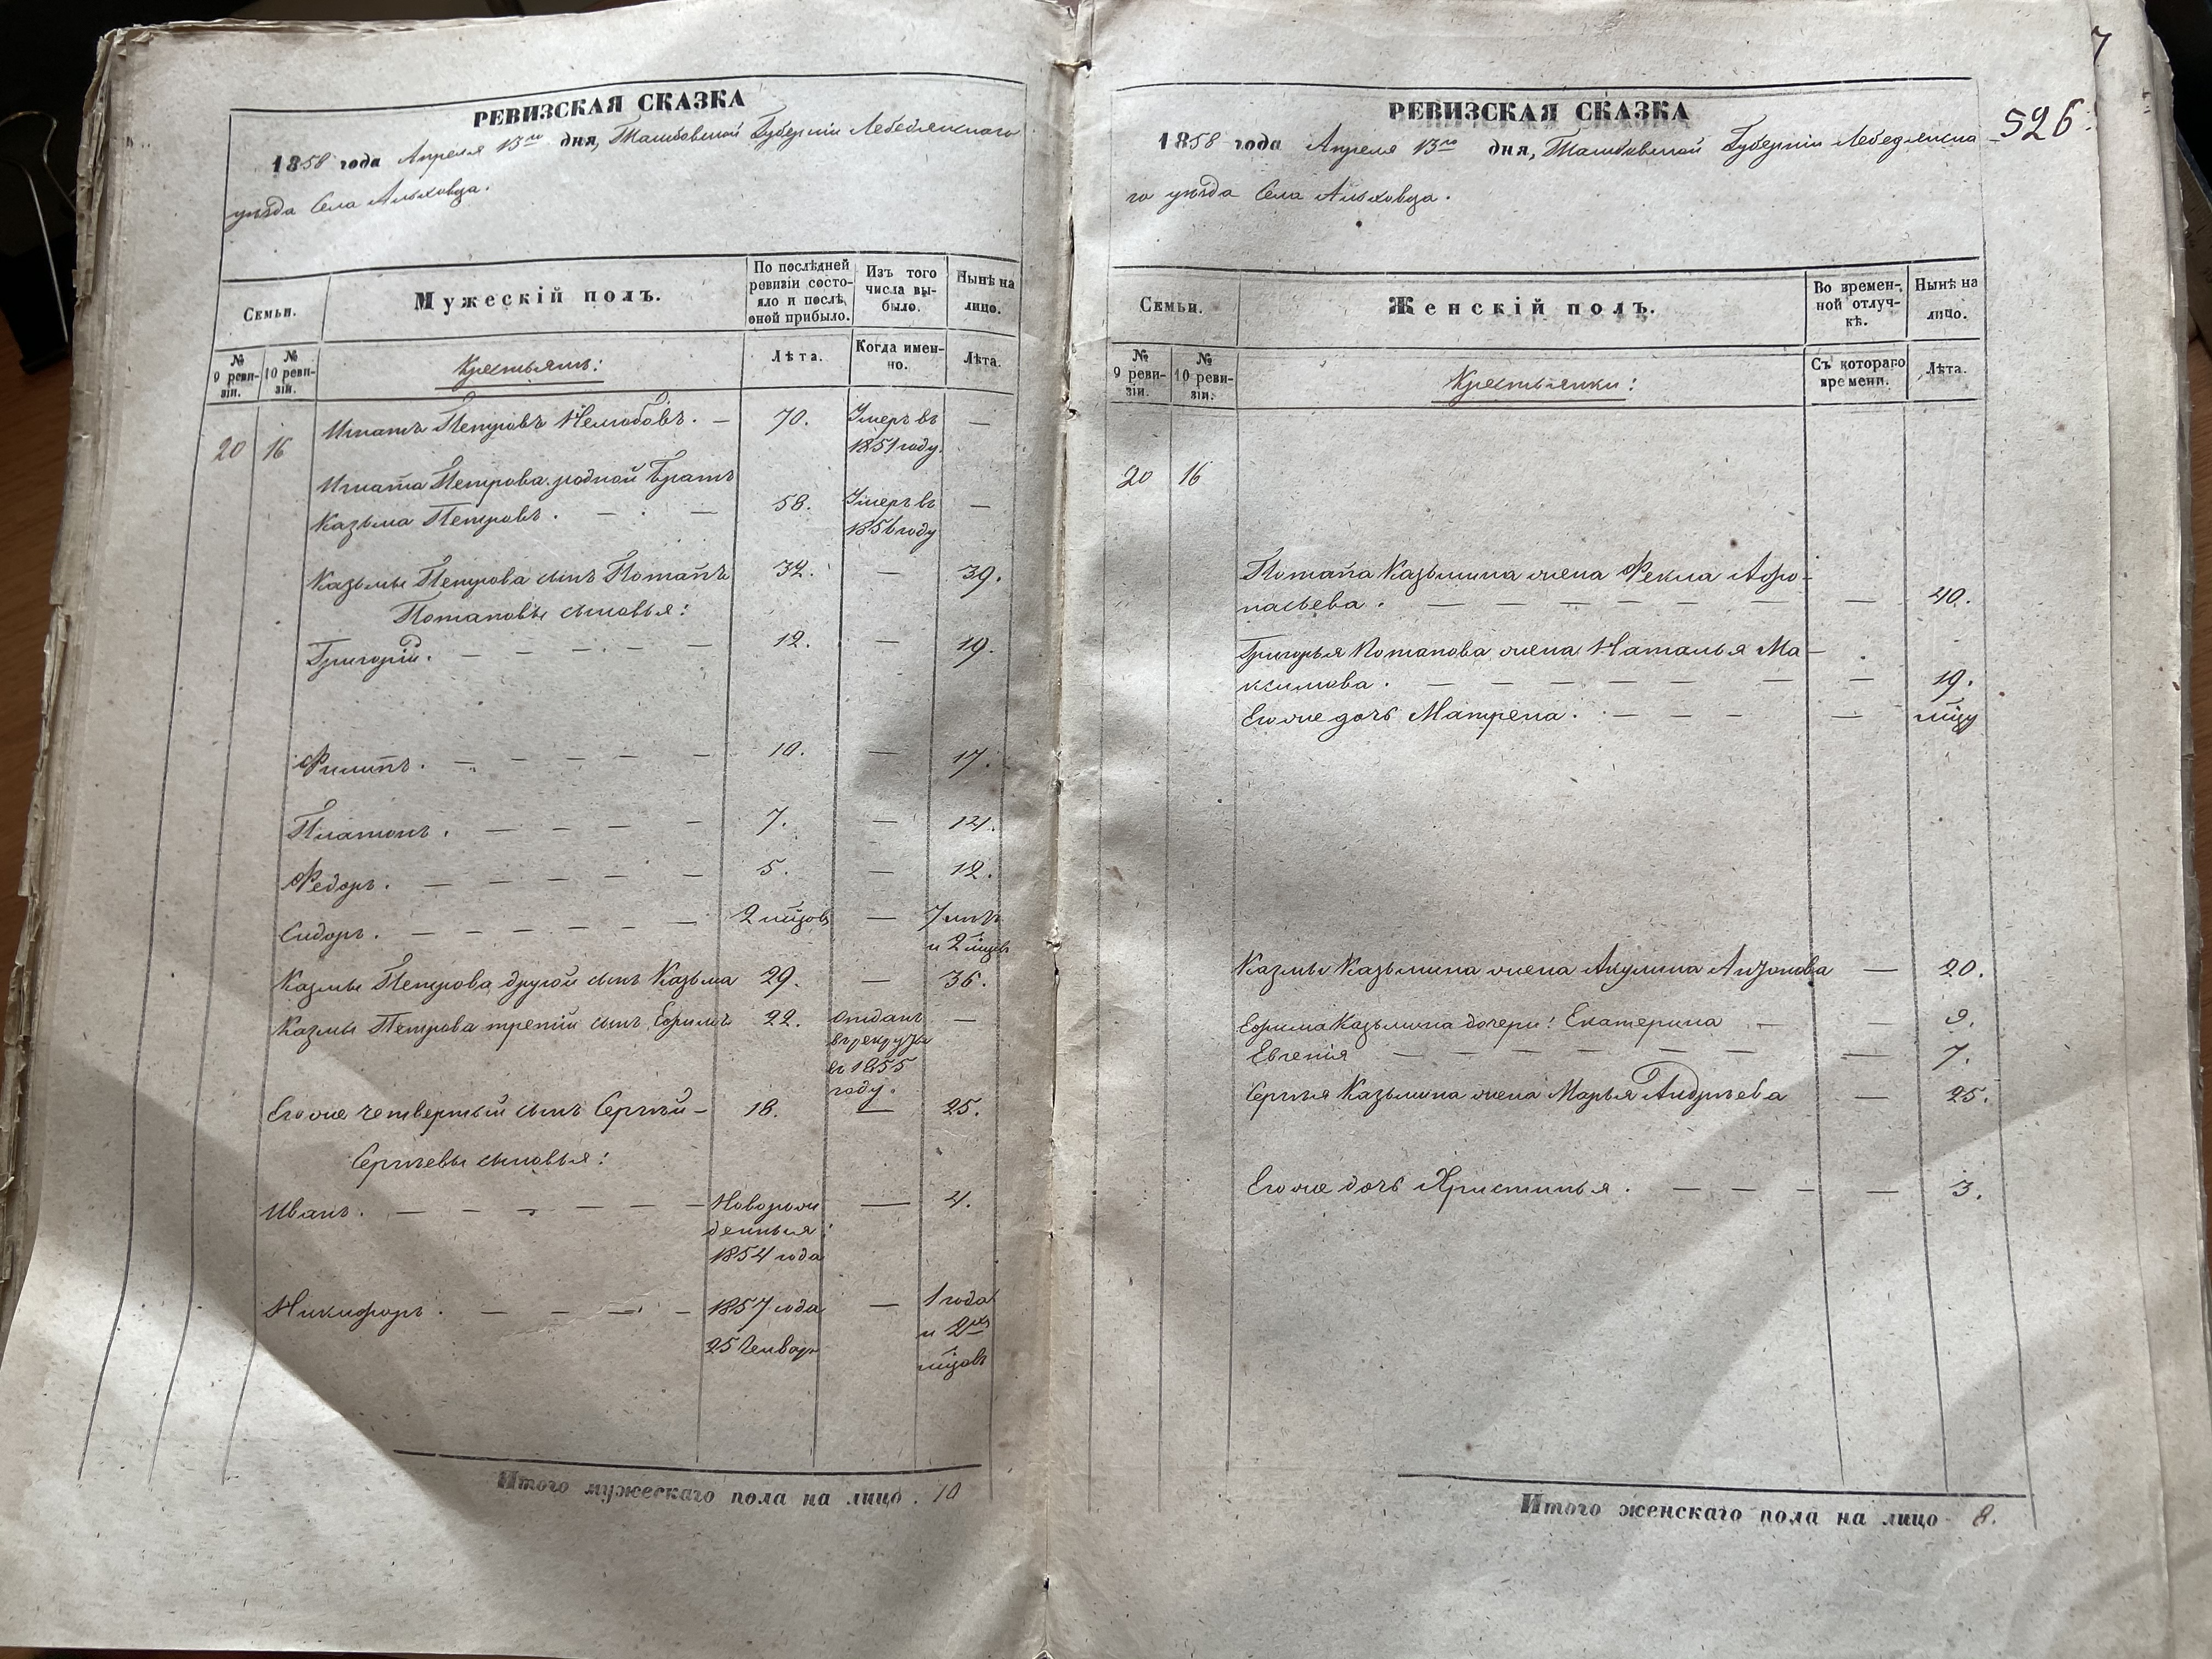 РЕВИЗСКАЯ СКАЗКА
1858 года Апреля 13го дня, Тамбовской Губерніи Лебедянскаго
уѣзда Села Ольховца.
Семьи.
Мужескій полъ.
По послѣдней ревизіи состояло и послѣ оной прибыло.
Изъ того числа выбыло.
Нынѣ на лицо.
№ 9 ревизіи.
№ 10 ревизіи.
Крестьянъ:
Лѣта.
Когда именно.
Лѣта.
20 16 Игнатъ Петровъ Нелюбовъ. — 70. Умеръ въ —
1851 году.
Игната Петрова родной братъ
Казьма Петровъ. — — 58. Умеръ въ —
1856 году
Казьмы Петрова сынъ Потапъ 32. — 39.
Потаповы сыновья:
Григорій. — — — — — 12. — 19.
Филипъ. — — — — — 10. — 17.
Платонъ. — — — — 7. — 14.
Федоръ. — — — — — 5. — 12.
Сидоръ. — — — — — 2 мцов — 7 лѣтъ
и 2 мцов
Казмы Петрова другой сынъ Казьма 29. — 36.
Казмы Петрова третій сынъ Ефимъ 22. отданъ —
въ рекруты
въ 1855
году.
Его же четвертый сынъ Сергѣй — 18. — 25.
Сергѣевы сыновья:
Иванъ. — — — — — — Новорож — 4.
денныя:
1854 года
Никифоръ. — — — — 1857 года — 1 года
25 Генвар и 2хъ
мцовъ
Итого мужескаго пола на лицо. 10
7
526.
РЕВИЗСКАЯ СКАЗКА
1858 года Апреля 13го дня, Тамбовской Губерніи Лебедянска-
го уѣзда Села Ольховца.
Семьи.
Женскій полъ.
Во временной отлучкѣ.
Нынѣ на лицо.
№ 9 ревизіи.
№ 10 ревизіи.
Крестьянки:
Съ котораго времени.
Лѣта.
20 16
Потапа Казьмина жена Фекла Афо-
насьева. — — — — — — — 40.
Григорья Потапова жена Наталья Ма-
ксимова. — — — — — — — 19.
Его же дочь Матрена. — — — — мцу
Казмы Казьмина жена Акулина — 20.
Ефима Казьмина дочери: Екатерина — — 9.
Евгенія — — — — — — — 7.
Сергѣя Казьмина жена Марья Андрѣева — 25.
Его же дочь Христинья. — — — — 3.
Итого женскаго пола на лицо 8.